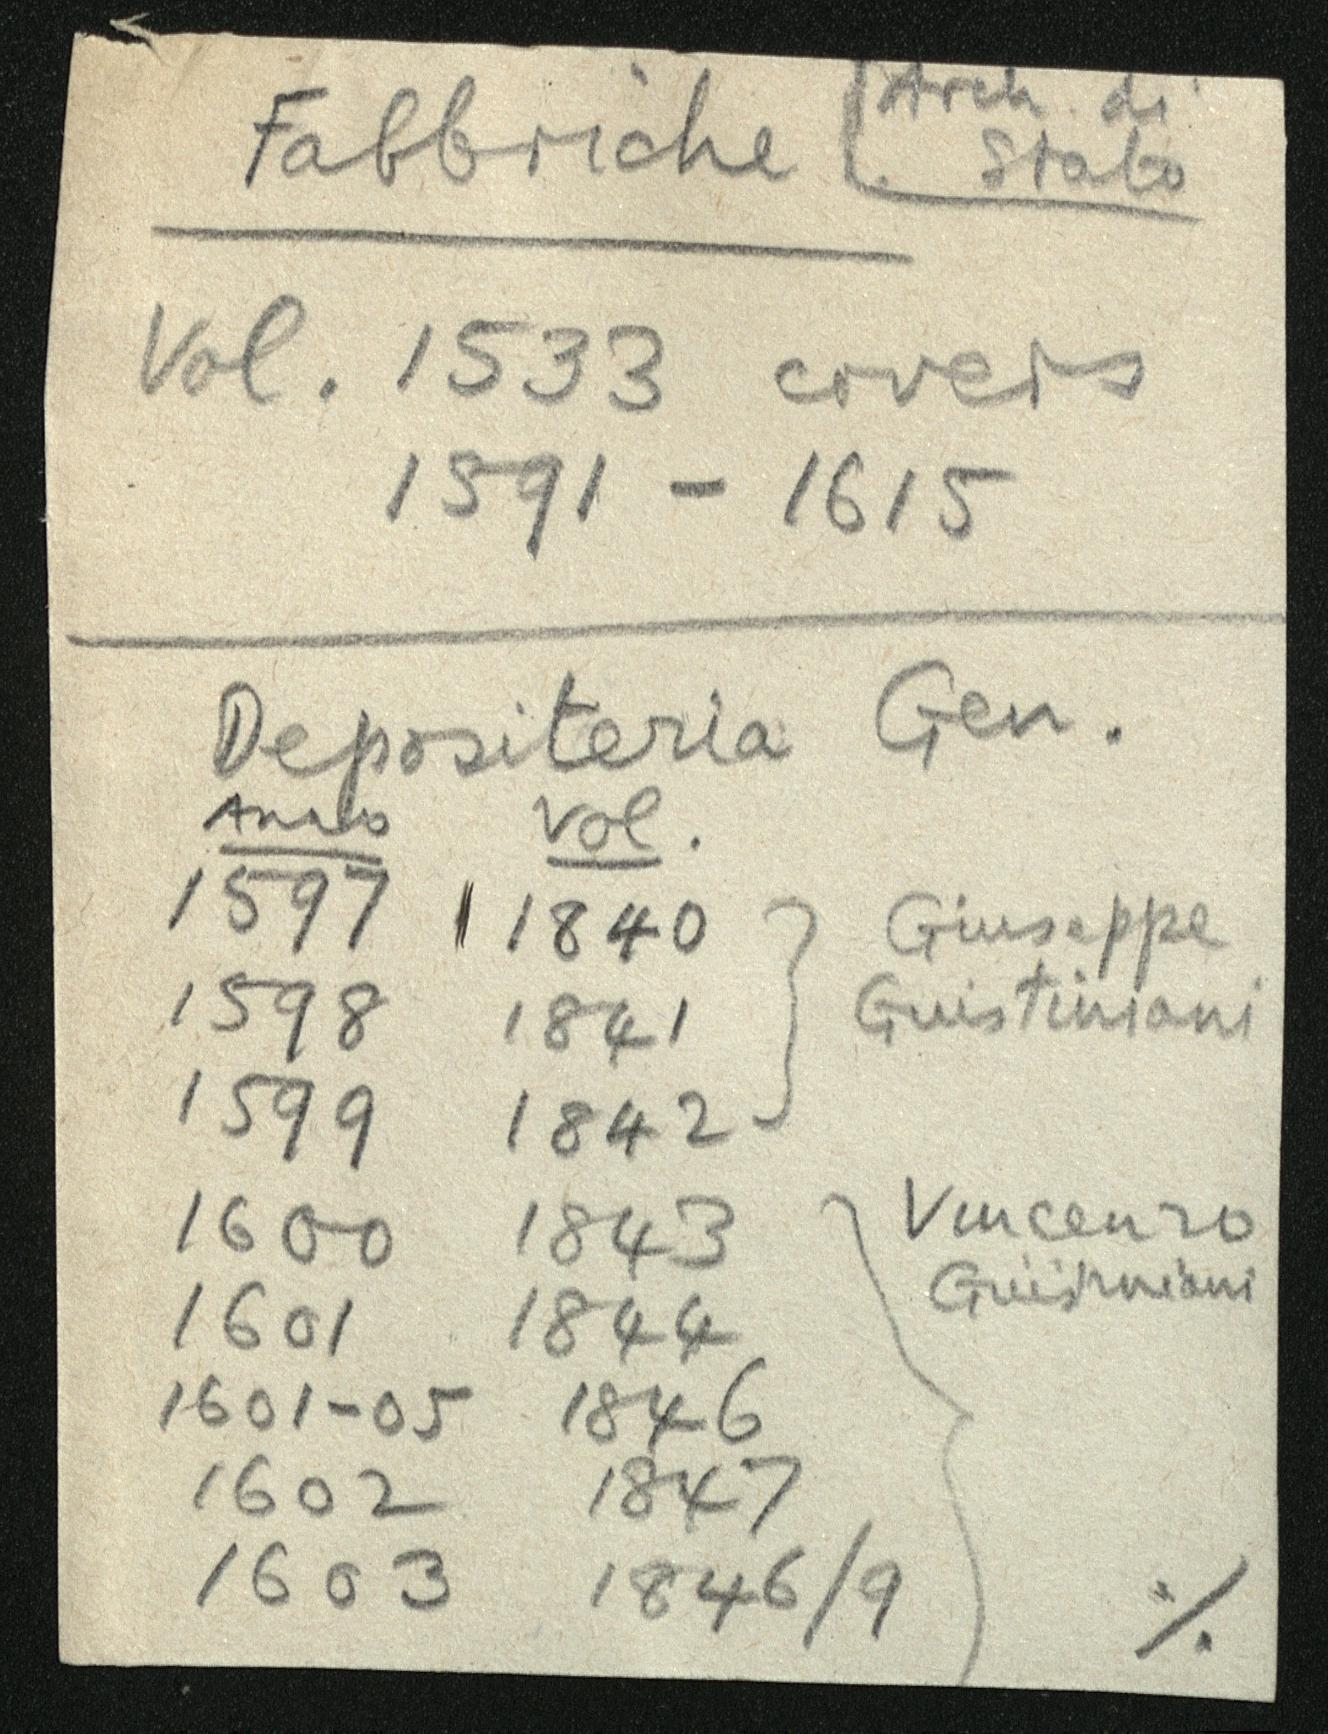 Fabbriche
Arch. di
Stato
Vol. 1533 covers
1591 - 1615
Depositeria Gen.
Anno Vol.
1597 1840
Giuseppe
1598 1841
Guistiniani
1599 1842
1600 1843
Vincenzo
Guistiniani
1601 1844
1601-05 1846
1602 1847
1603 1846/9
·/.